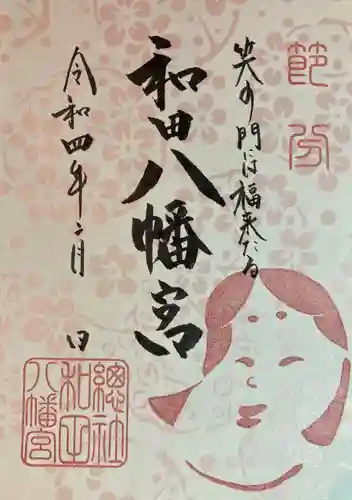 節分
笑の門には福来たる
和田八幡宮
令和四年二月
日
總社
和田
八幡宮